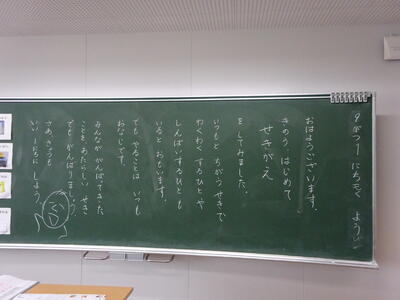 9がつ1にち
おはようございます。
きのう、はじめて
せきがえ
をしてみました。
いつもとちがうせきで
わくわくするひとや
しんぱいするひとも
いるとおもいます。
でもやることは いつも
おなじです。
みんなが がんばってきた
ことを あたらしい せき
でもがんばりましょう。
さあ、きょうも
いい1にちにしよう。